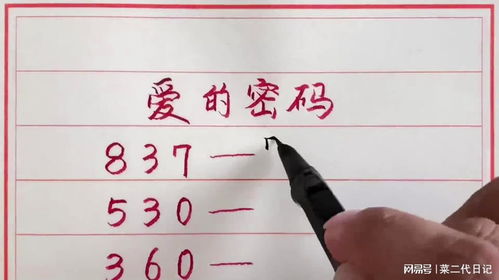 爱的密码
837—
530—
360—
网易号 | 菜二代日记